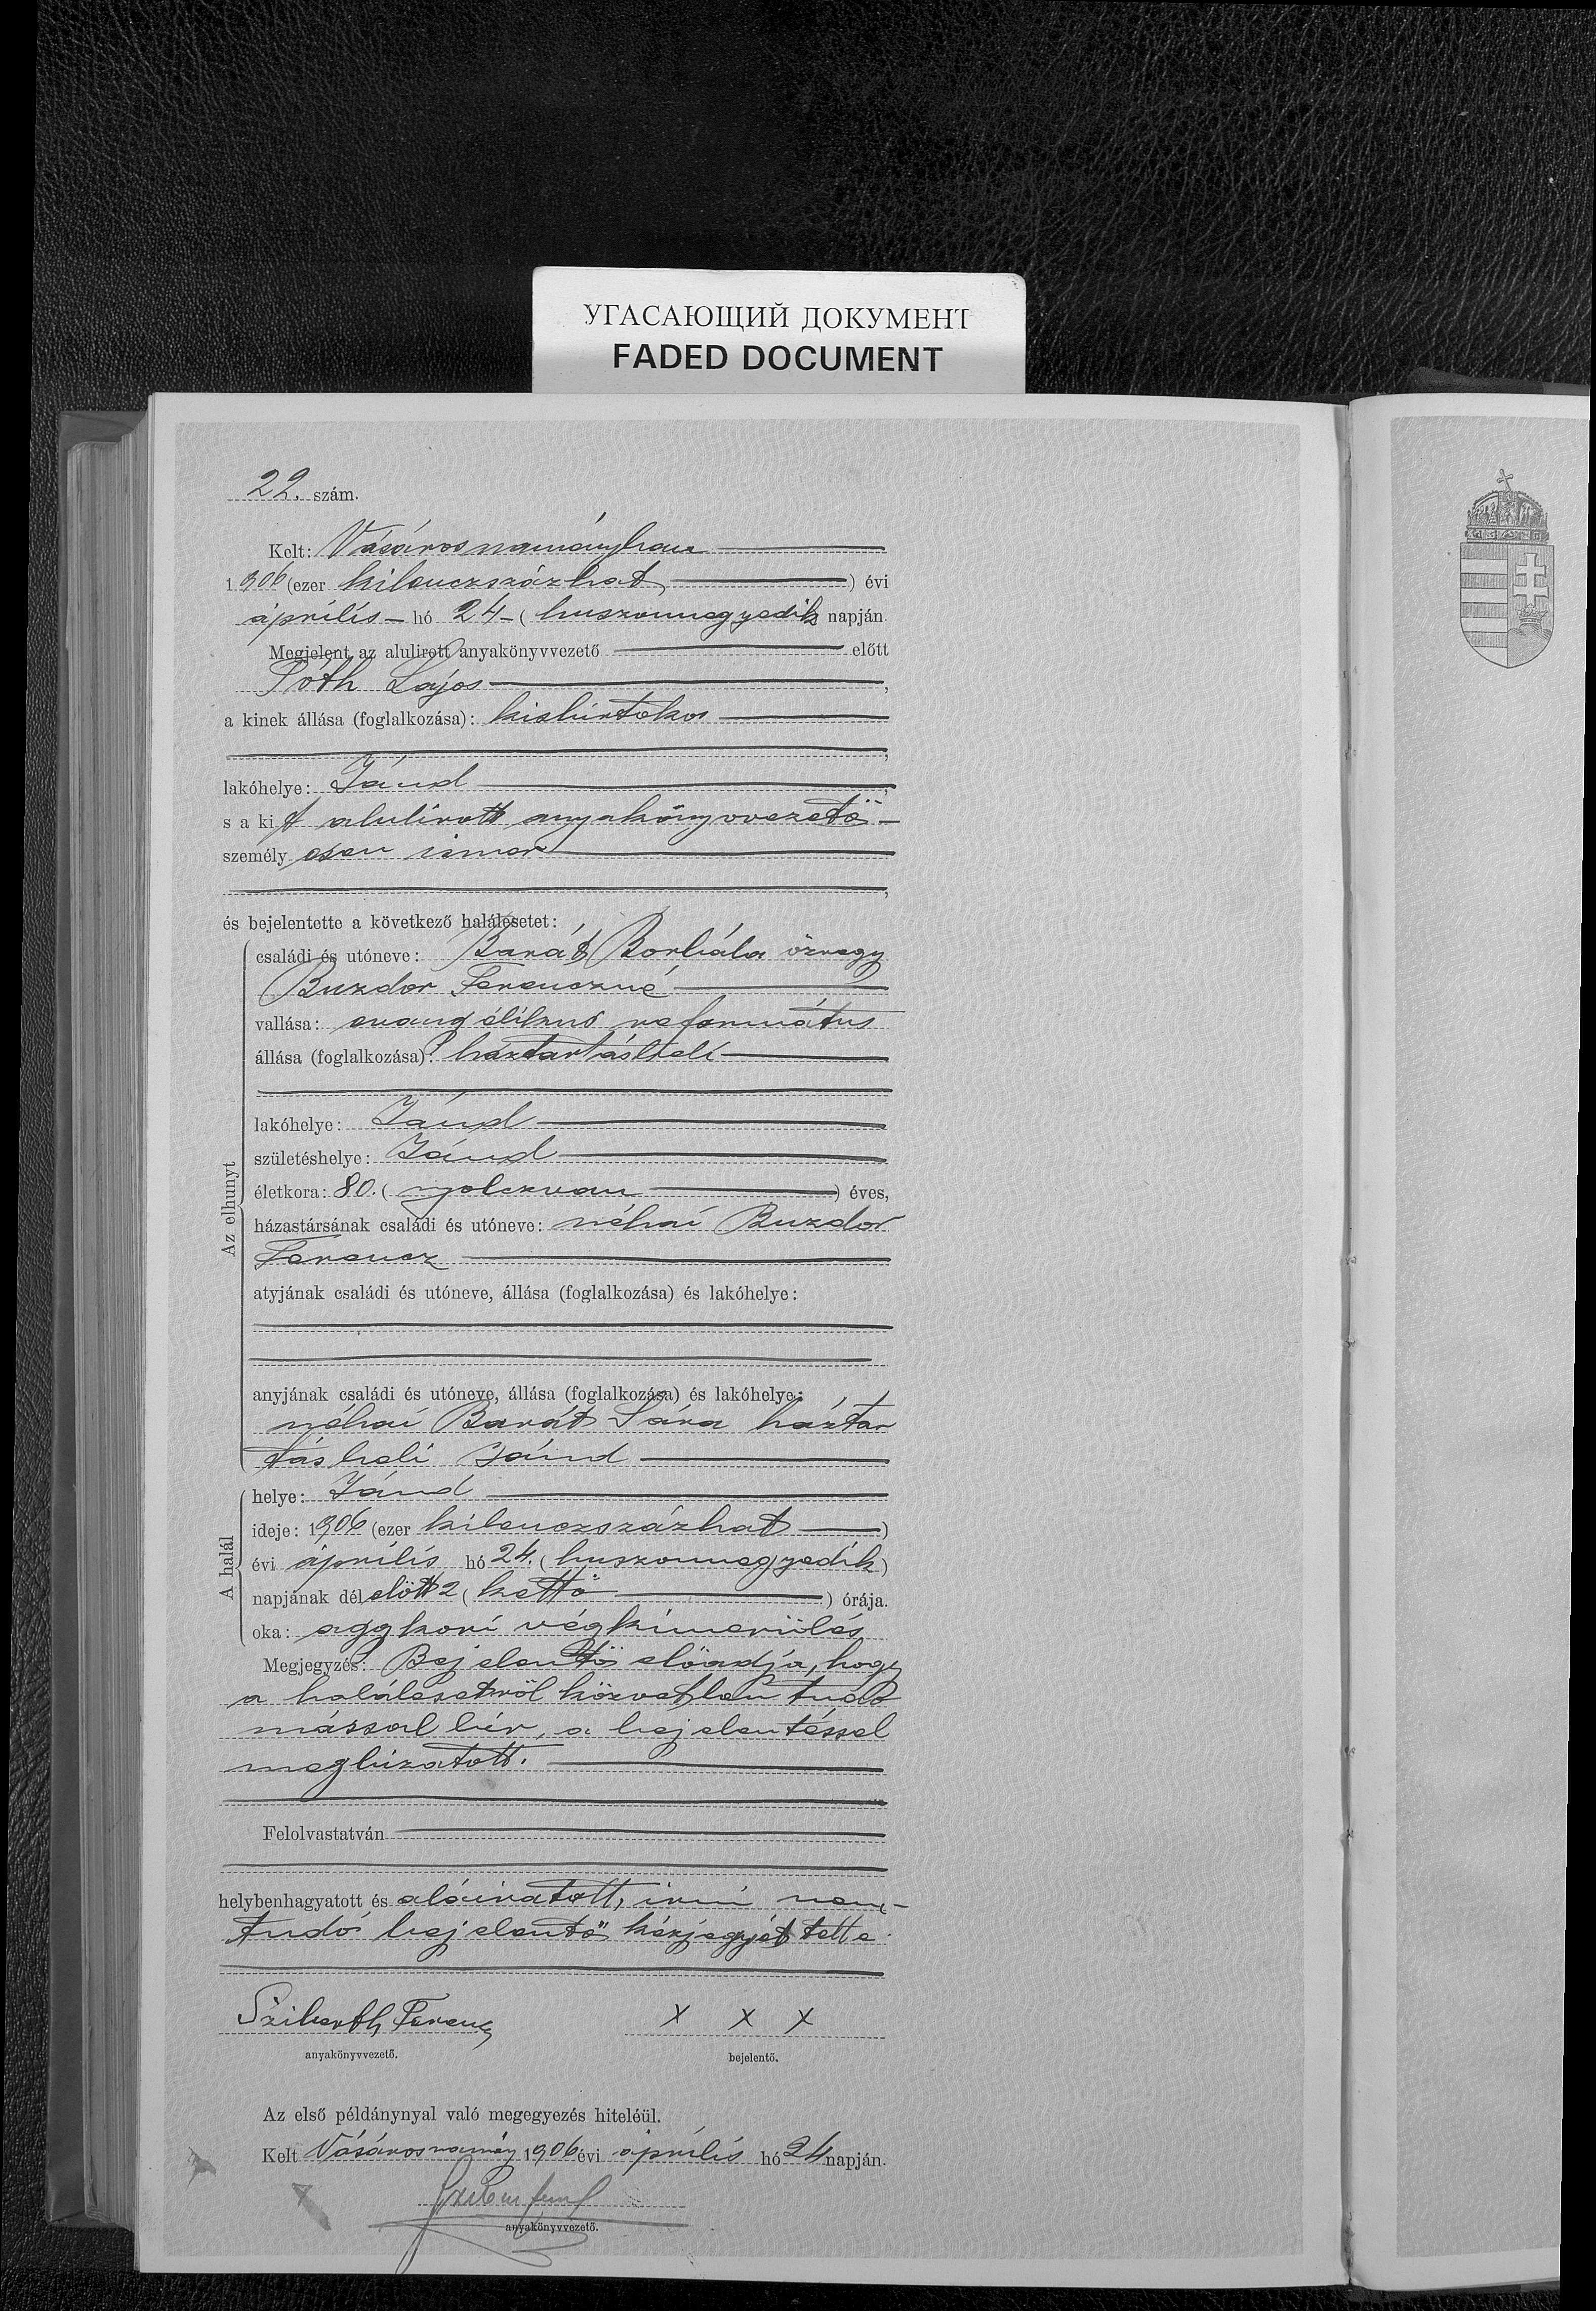 УГАСАЮЩИЙ ДОКУМЕНТ
FADED DOCUMENT
22. szám.
Kelt: Vásárosnaményban
1906 (ezer kilenczszázhat) évi
április hó 24 (huszonnegyedik napján.
Megjelent az alulirott anyakönyvvezető előtt
Tóth Lajos,
a kinek állása (foglalkozása): kisbirtokos
,
lakóhelye: Jánd,
s a kit alulirott anyakönyvvezető
személyesen ismer
,
és bejelentette a következő halálesetet:
Az elhunyt
családi és utóneve: Barát Borbála özvegy
Buzdor Ferenczné
vallása: evangélikus református
állása (foglalkozása): háztartásbeli
lakóhelye: Jánd
születéshelye: Jánd
életkora: 80. (nyolczvan) éves,
házastársának családi és utóneve: néhai Buzdor
Ferencz
atyjának családi és utóneve, állása (foglalkozása) és lakóhelye:
anyjának családi és utóneve, állása (foglalkozása) és lakóhelye:
néhai Barát Sára háztar
tásbeli Jánd
A halál
helye: Jánd
ideje: 1906 (ezer kilenczszázhat)
évi április hó 24. (huszonnegyedik)
napjának délelőtt 2 (kettő) órája.
oka: aggkori végkimerülés
Megjegyzés: Bejelentő előadja, hogy
a halálesetről közvetlen tudo
mással bír, a bejelentéssel
megbizatott.
Felolvastatván
helybenhagyatott és aláiratott, irni nem
tudó bejelentő kézjegyét tette
Sziberth Ferencz x x x
anyakönyvvezető. bejelentő.
Az első példánynyal való megegyezés hiteléül.
Kelt Vásárosnamény 1906 évi április hó 24 napján.
anyakönyvvezető.